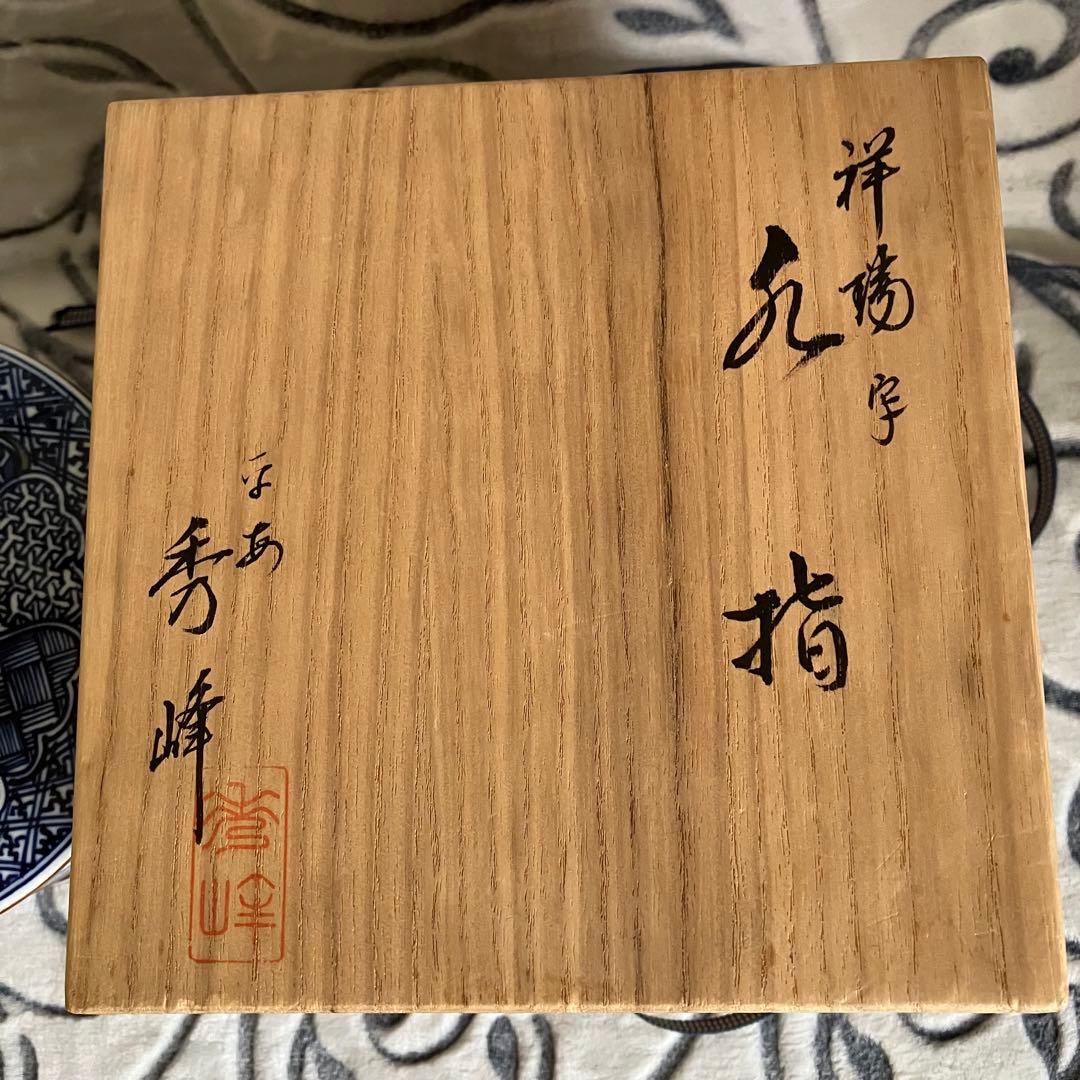 祥瑞写
水指
平安
秀峰
秀峰